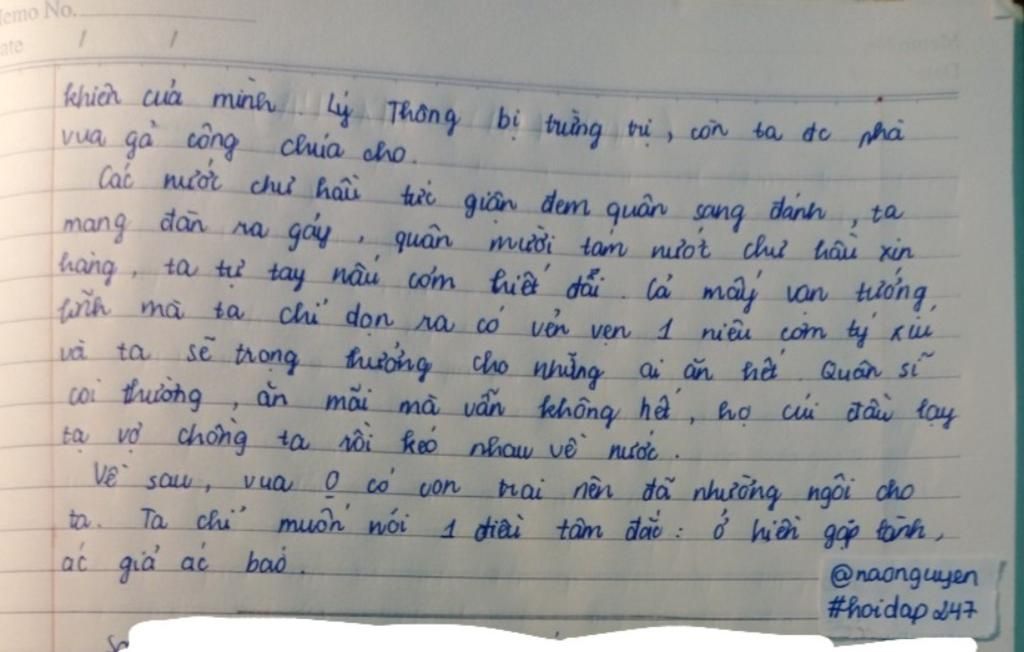 Memo No.
ate / /
khiến của mình. Lý Thông bị trừng trị, còn ta đc nhà
vua gả công chúa cho.
Các nước chư hầu tức giận đem quân sang đánh, ta
mang đàn ra gảy, quân mười tám nướt chư hầu xin
hàng, ta tự tay nấu cơm thiết đãi. Cả mấy vạn tướng
lĩnh mà ta chỉ dọn ra có vẻn vẹn 1 niêu cơm tý xíu
và ta sẽ trọng thưởng cho những ai ăn hết. Quân sĩ
coi thường, ăn mãi mà vẫn không hết, họ cúi đầu lạy
tạ vợ chồng ta rồi kéo nhau về nước.
Về sau, vua 0 có con trai nên đã nhường ngôi cho
ta. Ta chỉ muốn nói 1 điều tâm đắc: ở hiền gặp lành,
ác giả ác báo.
@naonguyen
#hoidap247